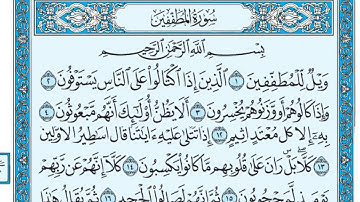 سُورَةُ المُطَفِّفِينَ
بِسْمِ ٱللَّهِ ٱلرَّحْمَٰنِ ٱلرَّحِيمِ
وَيْلٌ لِّلْمُطَفِّفِينَ ١ ٱلَّذِينَ إِذَا ٱكْتَالُوا۟ عَلَى ٱلنَّاسِ يَسْتَوْفُونَ ٢
وَإِذَا كَالُوهُمْ أَو وَّزَنُوهُمْ يُخْسِرُونَ ٣ أَلَا يَظُنُّ أُو۟لَٰٓئِكَ أَنَّهُم مَّبْعُوثُونَ ٤
بِهِۦٓ إِلَّا كُلُّ مُعْتَدٍ أَثِيمٍ ١٢ إِذَا تُتْلَىٰ عَلَيْهِ ءَايَٰتُنَا قَالَ أَسَٰطِيرُ ٱلْأَوَّلِينَ
١٣ كَلَّا ۖ بَلْ ۜ رَانَ عَلَىٰ قُلُوبِهِم مَّا كَانُوا۟ يَكْسِبُونَ ١٤ كَلَّآ إِنَّهُمْ عَن رَّبِّهِمْ
يَوْمَئِذٍ لَّمَحْجُوبُونَ ١٥ ثُمَّ إِنَّهُمْ لَصَالُوا۟ ٱلْجَحِيمِ ١٦ ثُمَّ يُقَالُ هَٰذَا